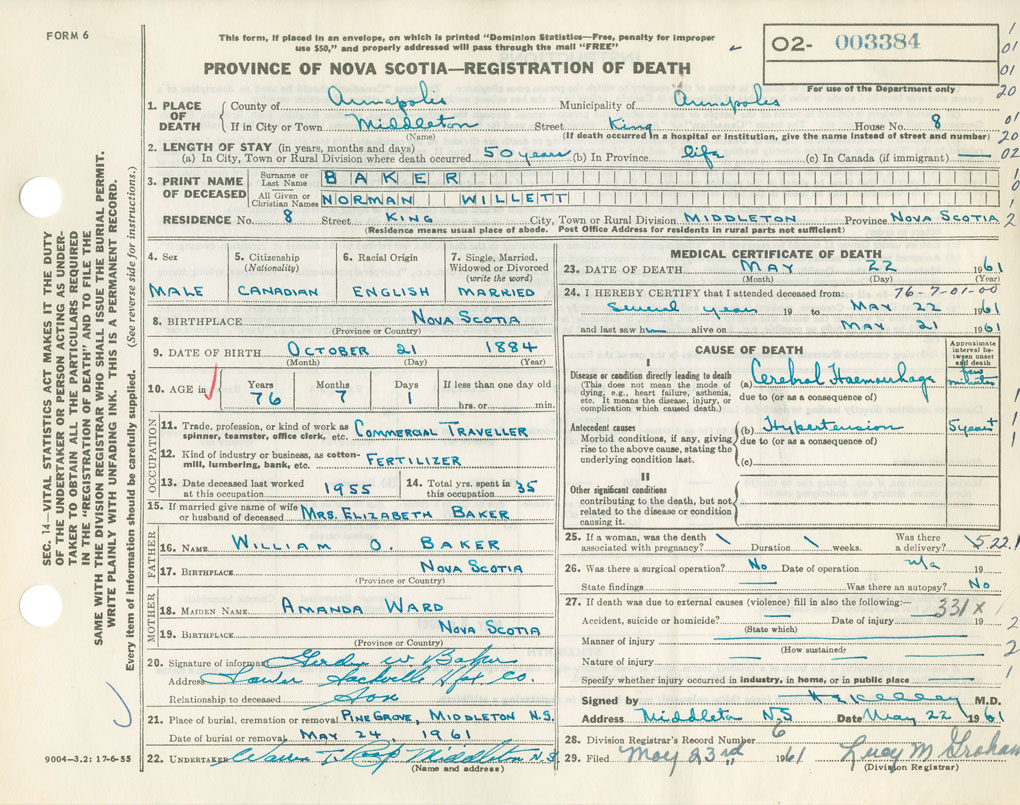 FORM 6
This form, if placed in an envelope, on which is printed "Dominion Statistics—Free, penalty for improper
use $50," and properly addressed will pass through the mail "FREE"
O2- 003384
For use of the Department only
PROVINCE OF NOVA SCOTIA—REGISTRATION OF DEATH
1. PLACE OF DEATH County of Annapolis Municipality of Annapolis
If in City or Town Middleton Street King House No. 8
(Name) (If death occurred in a hospital or institution, give the name instead of street and number)
2. LENGTH OF STAY (in years, months and days)
(a) In City, Town or Rural Division where death occurred 50 years (b) In Province life (c) In Canada (if immigrant) —
3. PRINT NAME OF DECEASED Surname or Last Name BAKER
All Given or Christian Names NORMAN WILLETT
RESIDENCE No. 8 Street KING City, Town or Rural Division MIDDLETON Province NOVA SCOTIA
(Residence means usual place of abode. Post Office Address for residents in rural parts not sufficient)
4. Sex MALE
5. Citizenship (Nationality) CANADIAN
6. Racial Origin ENGLISH
7. Single, Married, Widowed or Divorced (write the word) MARRIED
8. BIRTHPLACE NOVA SCOTIA
(Province or Country)
9. DATE OF BIRTH OCTOBER 21 1884
(Month) (Day) (Year)
10. AGE in Years 76 Months 7 Days 1 If less than one day old hrs. or min.
OCCUPATION
11. Trade, profession, or kind of work as spinner, teamster, office clerk, etc. COMMERCIAL TRAVELLER
12. Kind of industry or business, as cotton-mill, lumbering, bank, etc. FERTILIZER
13. Date deceased last worked at this occupation 1955
14. Total yrs. spent in this occupation 35
15. If married give name of wife or husband of deceased MRS. ELIZABETH BAKER
FATHER
16. NAME WILLIAM O. BAKER
17. BIRTHPLACE NOVA SCOTIA
(Province or Country)
MOTHER
18. MAIDEN NAME AMANDA WARD
19. BIRTHPLACE NOVA SCOTIA
(Province or Country)
20. Signature of informant W. Baker
Address Lower Sackville Hfx Co.
Relationship to deceased Son
21. Place of burial, cremation or removal PINE GROVE, MIDDLETON N.S.
Date of burial or removal MAY 24, 1961
22. UNDERTAKER Middleton N.S.
(Name and address)
MEDICAL CERTIFICATE OF DEATH
23. DATE OF DEATH MAY 22 1961
(Month) (Day) (Year)
24. I HEREBY CERTIFY that I attended deceased from: 76-7-01-00
Several years 19 to MAY 22 1961
and last saw him alive on MAY 21 1961
CAUSE OF DEATH
Approximate interval between onset and death
I
Disease or condition directly leading to death (a) Cerebral Haemorrhage few minutes
(This does not mean the mode of dying, e.g., heart failure, asthenia, etc. It means the disease, injury, or complication which caused death.) due to (or as a consequence of)
Antecedent causes (b) Hypertension 5 years+
Morbid conditions, if any, giving rise to the above cause, stating the underlying condition last. due to (or as a consequence of)
(c)
II
Other significant conditions
contributing to the death, but not related to the disease or condition causing it.
25. If a woman, was the death associated with pregnancy? \ Duration \ weeks. Was there a delivery? \ 522.1
26. Was there a surgical operation? No Date of operation n/a 19
State findings — Was there an autopsy? No
27. If death was due to external causes (violence) fill in also the following:— 331X
Accident, suicide or homicide? — Date of injury 19
(State which)
Manner of injury
(How sustained)
Nature of injury
Specify whether injury occurred in industry, in home, or in public place —
Signed by M.D.
Address Middleton N.S Date May 22 1961
28. Division Registrar's Record Number 6
29. Filed May 23rd 1961 Lucy M Graham
(Division Registrar)
SEC. 14—VITAL STATISTICS ACT MAKES IT THE DUTY
OF THE UNDERTAKER OR PERSON ACTING AS UNDER-
TAKER TO OBTAIN ALL THE PARTICULARS REQUIRED
IN THE "REGISTRATION OF DEATH" AND TO FILE THE
SAME WITH THE DIVISION REGISTRAR WHO SHALL ISSUE THE BURIAL PERMIT.
WRITE PLAINLY WITH UNFADING INK. THIS IS A PERMANENT RECORD.
Every item of information should be carefully supplied. (See reverse side for instructions.)
9004—3.2: 17-6-55